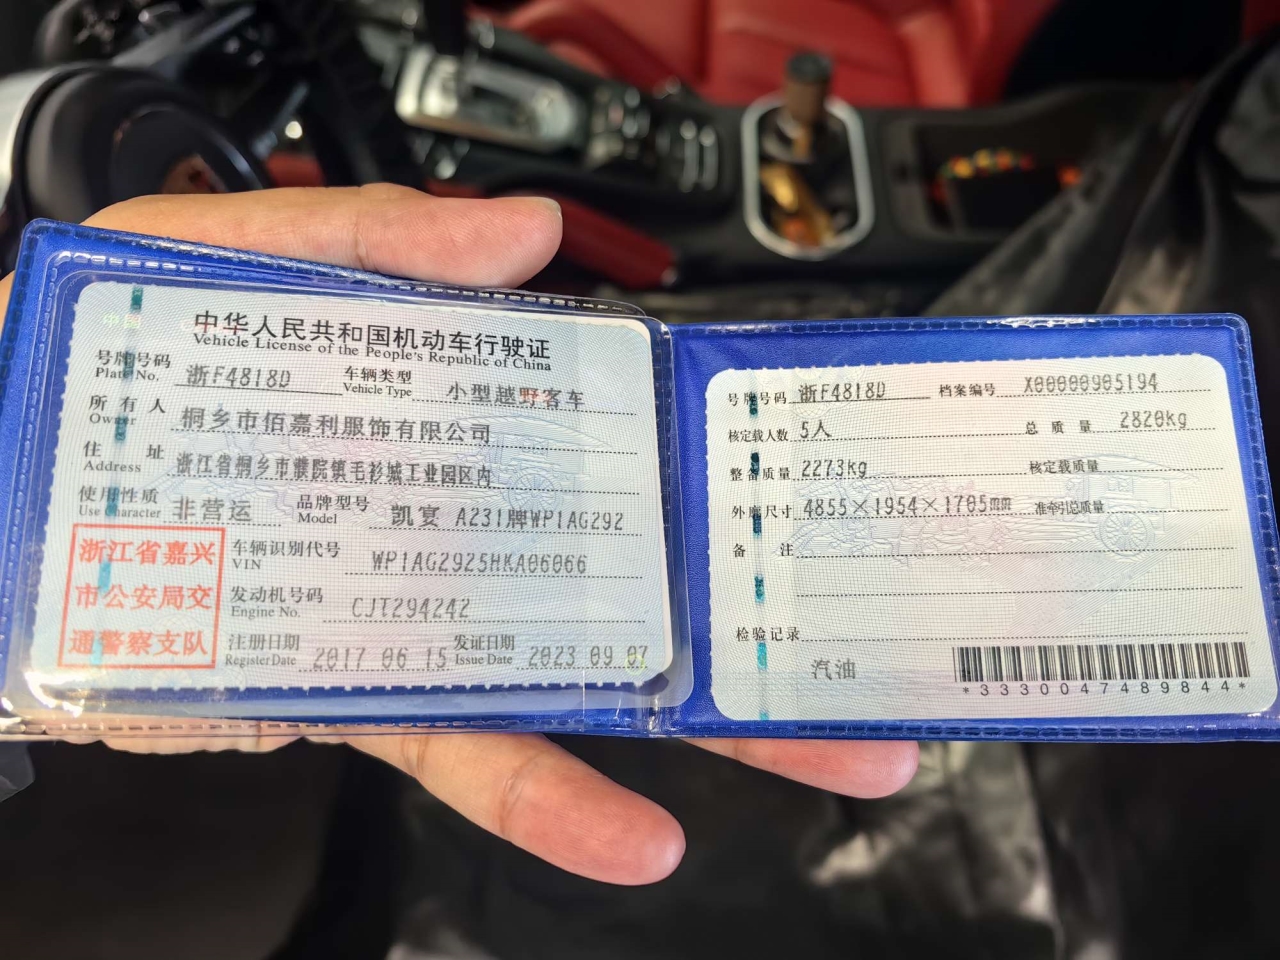 中华人民共和国机动车行驶证
Vehicle License of the People's Republic of China
号牌号码 浙F4818D 车辆类型 小型越野客车
Plate No. Vehicle Type
所有人 桐乡市佰嘉利服饰有限公司
Owner
住址 浙江省桐乡市濮院镇毛衫城工业园区内
Address
使用性质 非营运 品牌型号 凯宴 A231牌WP1AG292
Use Character Model
浙江省嘉兴
市公安局交
通警察支队
车辆识别代号 WP1AG2925HKA06066
VIN
发动机号码 CJT294242
Engine No.
注册日期 2017 06 15 发证日期 2023 09 07
Register Date Issue Date
号牌号码 浙F4818D 档案编号 X00000905194
核定载人数 5人 总质量 2820kg
整备质量 2273kg 核定载质量
外廓尺寸 4855×1954×1705mm 准牵引总质量
备注
检验记录
汽油
*3330047489844*